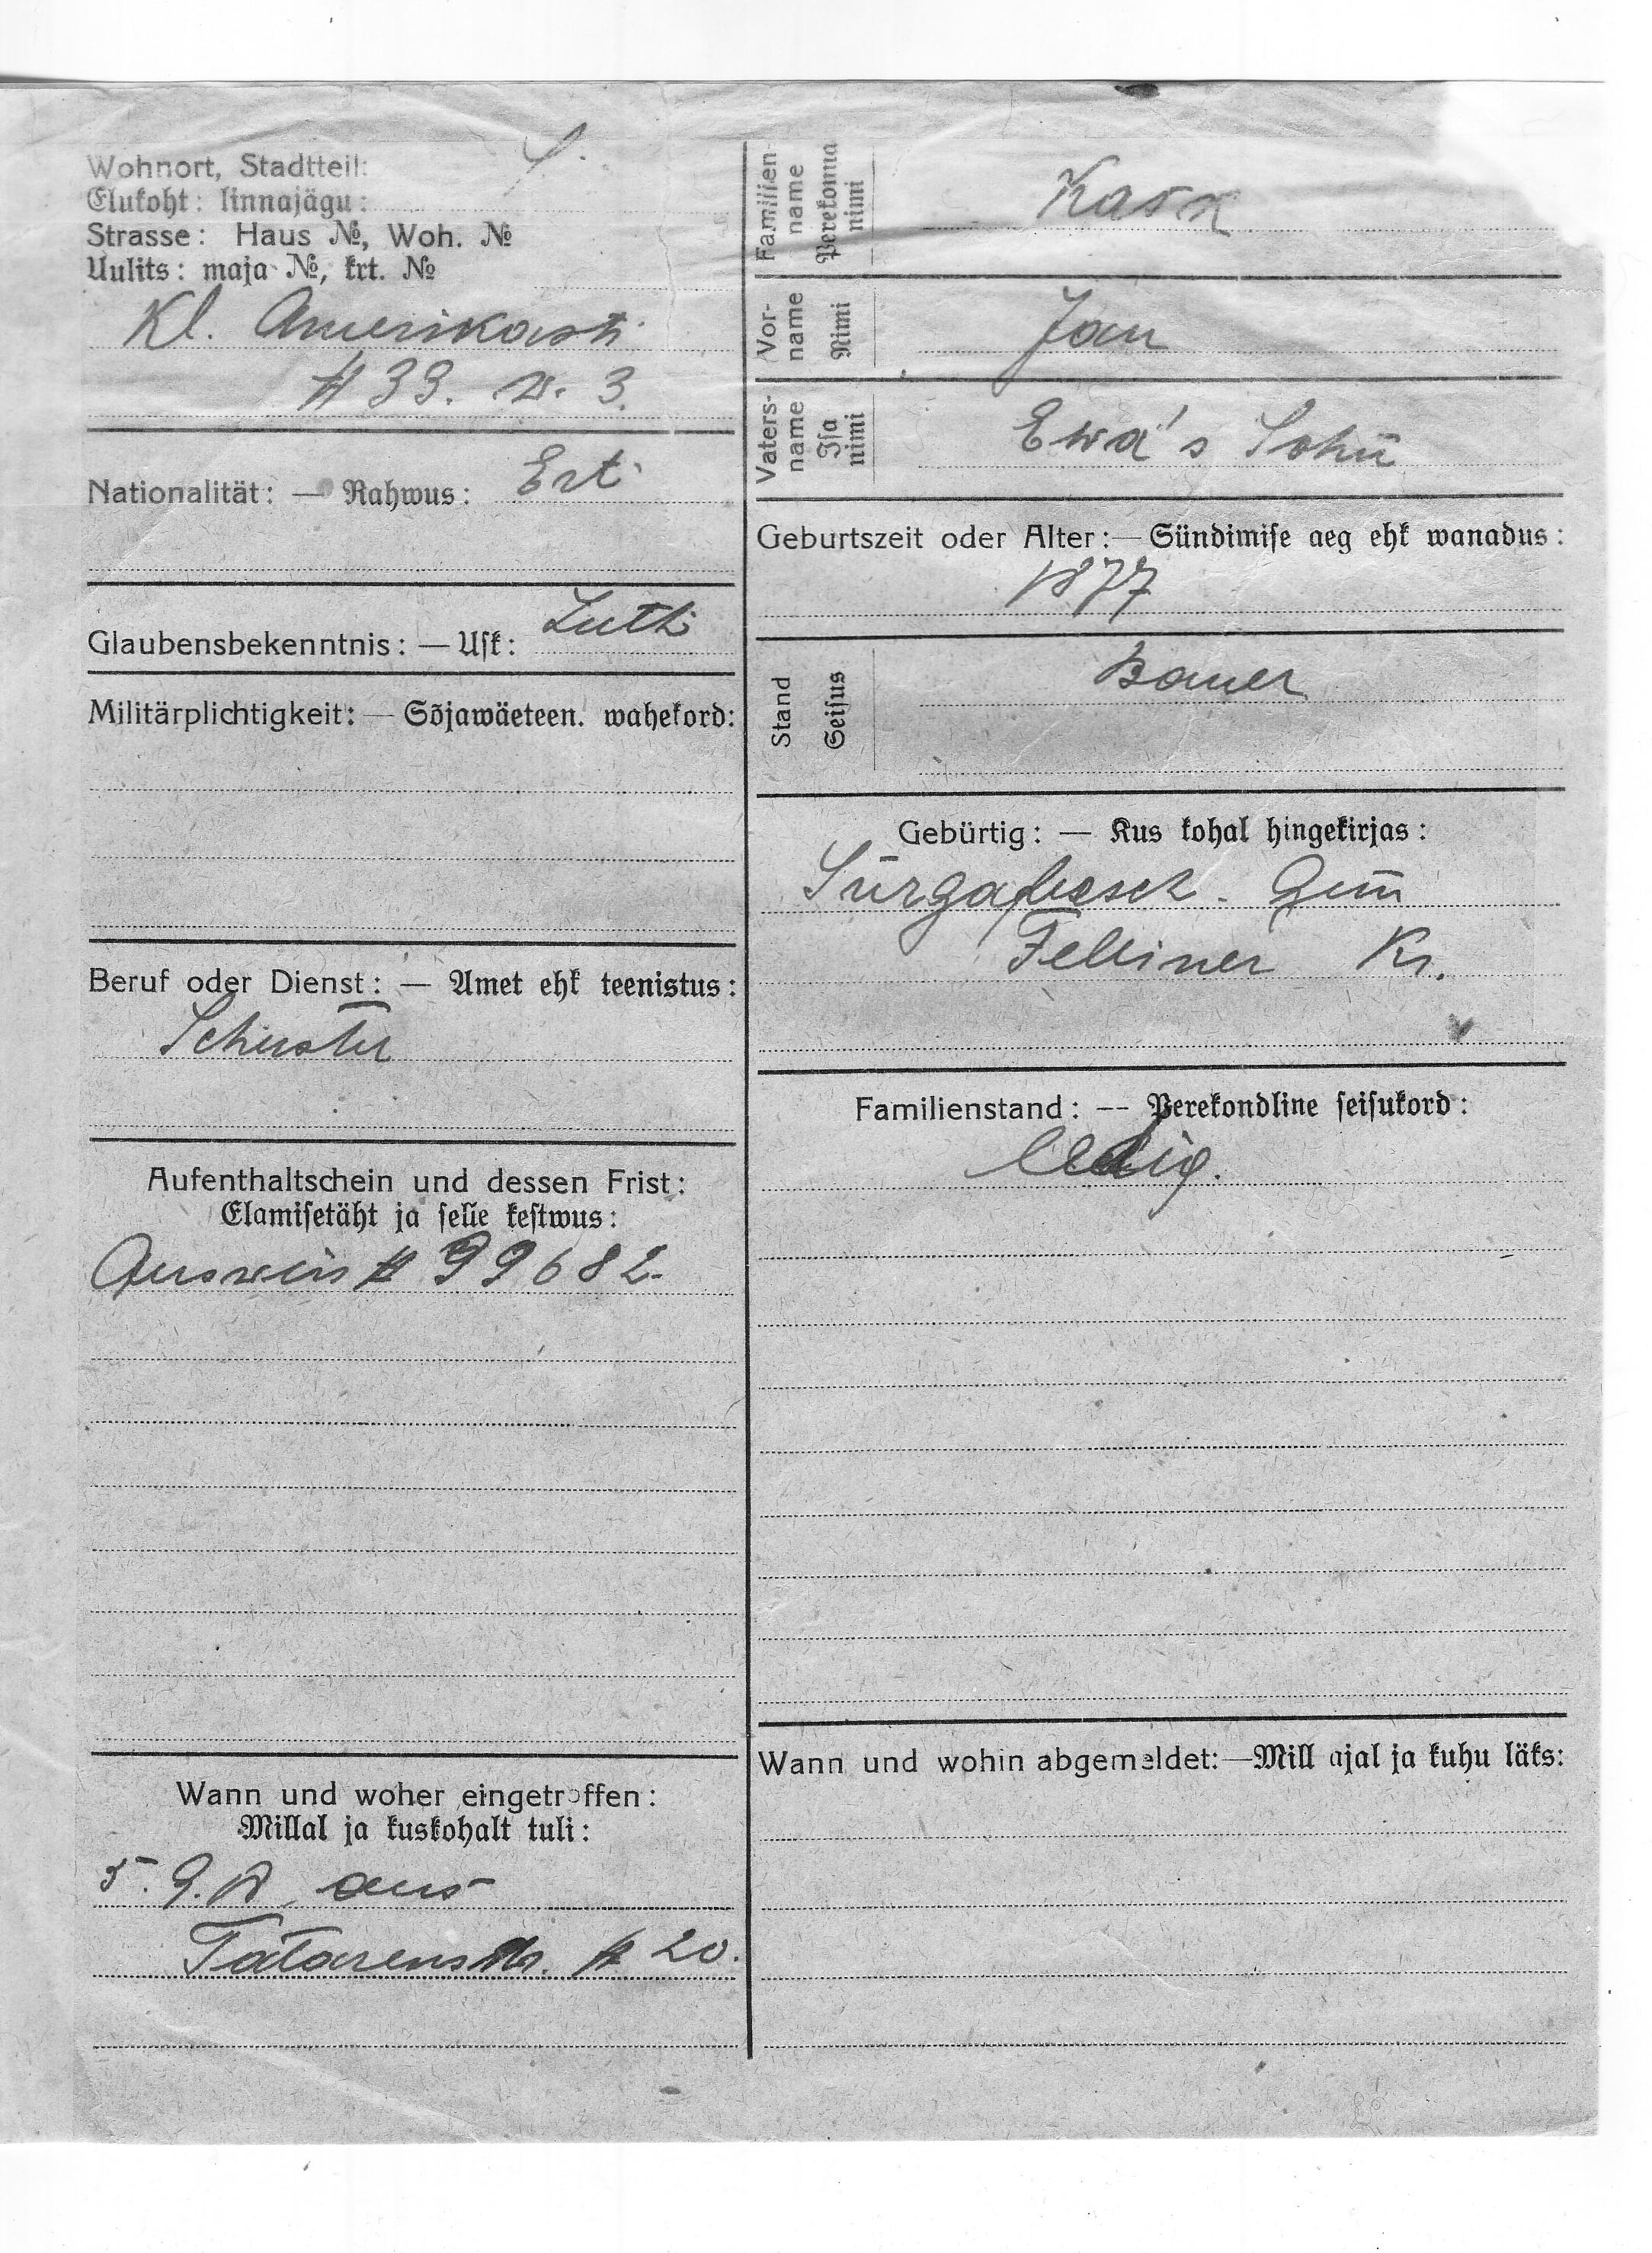 Wohnort, Stadtteil:
Elukoht: linnajägu:
Strasse: Haus №, Woh. №
Uulits: maja №, krt. №
Kl. Amerikastr.
# 33. w. 3.
Nationalität: — Rahwus: Est.
Glaubensbekenntnis: — Usk: Luth.
Militärplichtigkeit: — Sõjawäeteen. wahekord:
Beruf oder Dienst: — Amet ehk teenistus:
Schuster
Aufenthaltschein und dessen Frist:
Elamisetäht ja selle kestwus:
Ausweis # 99682.
Wann und woher eingetroffen:
Millal ja kuskohalt tuli:
5. 9. 18 aus
Tatarenstr. # 20.
Familien-
name
Perekonna
nimi
Kask
Vor-
name
Nimi
Jan
Vaters-
name
Isa
nimi
Ewa's Sohn
Geburtszeit oder Alter: — Sündimise aeg ehk wanadus:
1877
Stand
Seisus
Bauer
Gebürtig: — Kus kohal hingekirjas:
Gem
Felliner Kr.
Familienstand: — Perekondline seisukord:
ledig.
Wann und wohin abgemeldet: — Mill ajal ja kuhu läks: